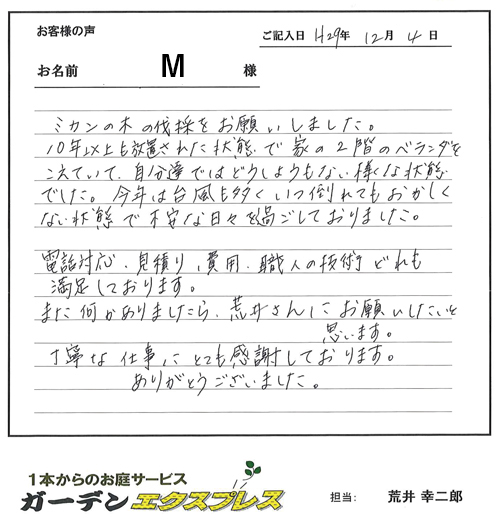 お客様の声
ご記入日 H29年 12月 4日
お名前 M 様
ミカンの木の伐採をお願いしました。
10年以上も放置された状態で家の2階のベランダを
こえていて、自分達ではどうしようもない様な状態
でした。今年は台風も多くいつ倒れてもおかしく
ない状態で不安な日々を過ごしておりました。
電話対応、見積り、費用、職人の技術どれも
満足しております。
また何かありましたら、荒井さんにお願いしたいと
思います。
丁寧な仕事にとても感謝しております。
ありがとうございました。
1本からのお庭サービス
ガーデンエクスプレス
担当: 荒井 幸二郎